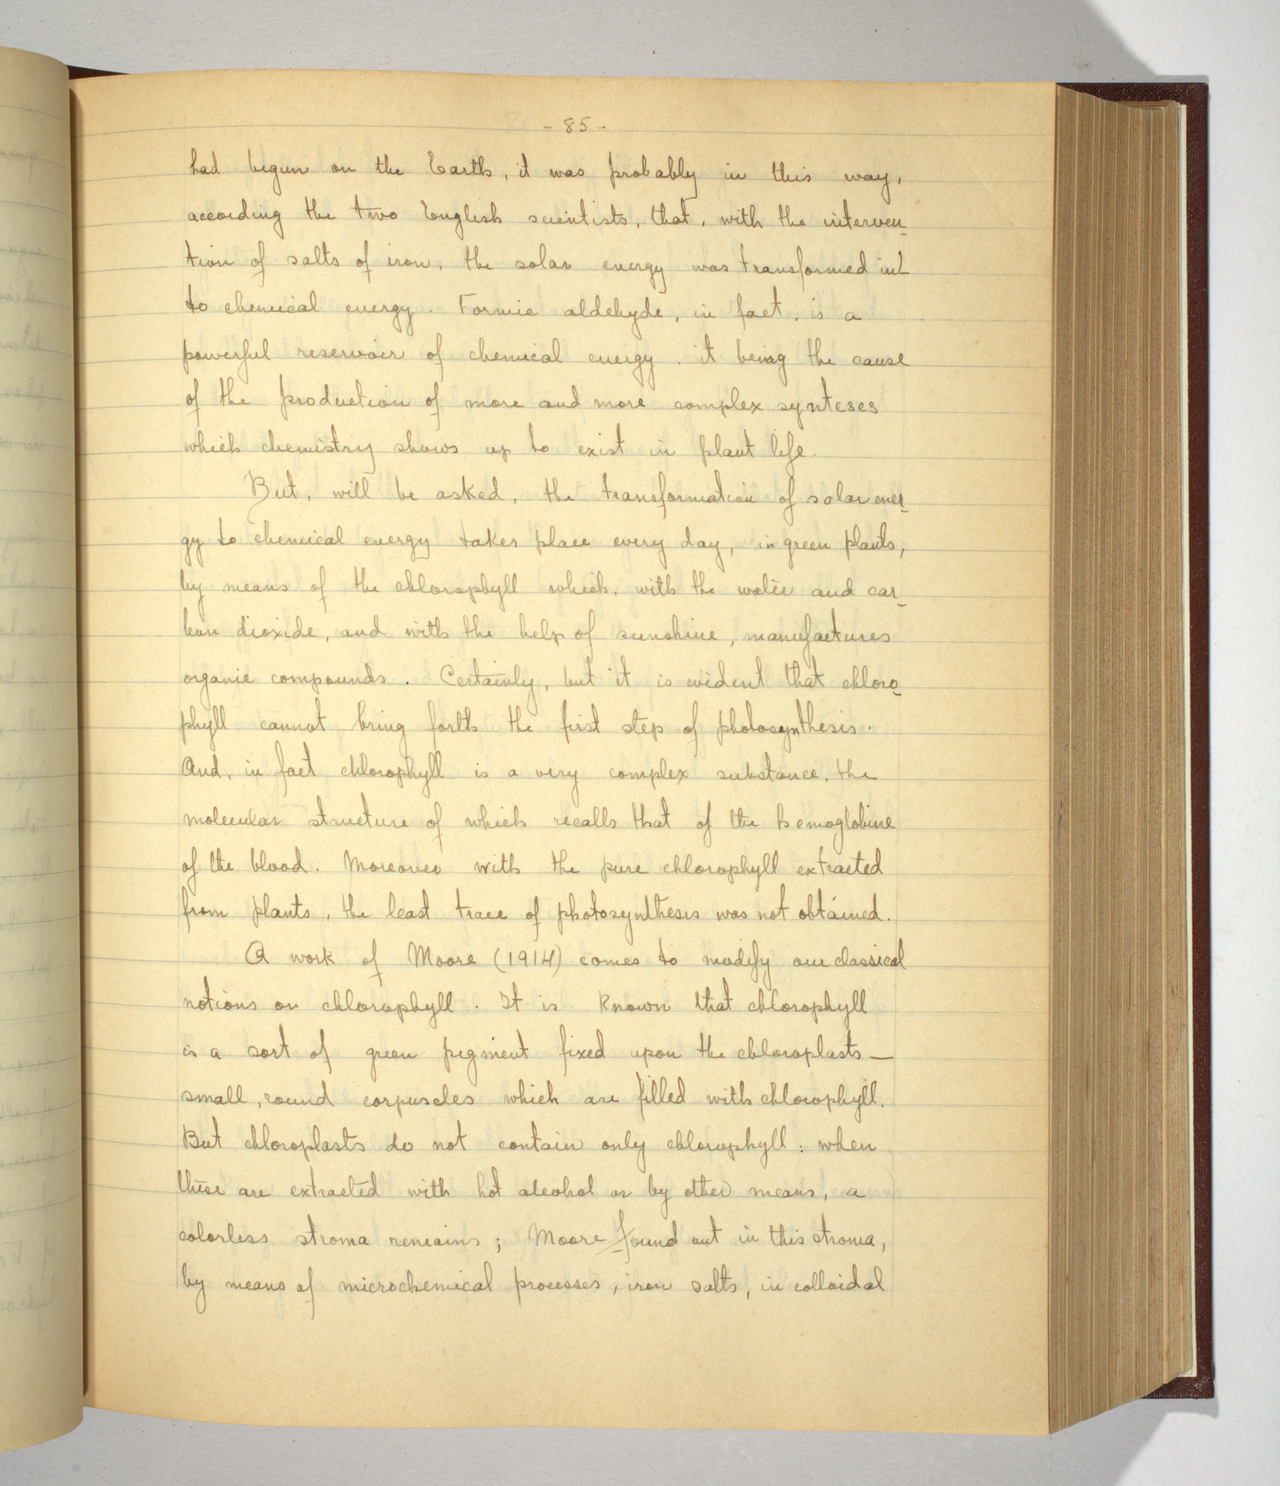 - 85 -
had begun on the Earth, it was probably in this way,
according the two English scientists, that, with the interven-
tion of salts of iron, the solar energy was transformed in-
to chemical energy. Formic aldehyde, in fact, is a
powerful reservoir of chemical energy, it being the cause
of the production of more and more complex synteses
which chemistry shows up to exist in plant life.
But, will be asked, the transformation of solar ener-
gy to chemical energy takes place every day, in green plants,
by means of the chlorophyll which, with the water and car-
bon dioxide, and with the help of sunshine, manufactures
organic compounds. Certainly, but it is evident that chloro-
phyll cannot bring forth the first step of photosynthesis.
And, in fact chlorophyll is a very complex substance, the
molecular structure of which recalls that of the hemoglobine
of the blood. Moreover with the pure chlorophyll extracted
from plants, the least trace of photosynthesis was not obtained.
A work of Moore (1914) comes to modify our classical
notions on chlorophyll. It is known that chlorophyll
is a sort of green pigment fixed upon the chloroplasts —
small, round corpuscles which are filled with chlorophyll.
But chloroplasts do not contain only chlorophyll: when
these are extracted with hot alcohol or by other means, a
colorless stroma remains; Moore found out in this stroma,
by means of microchemical processes, iron salts, in colloidal